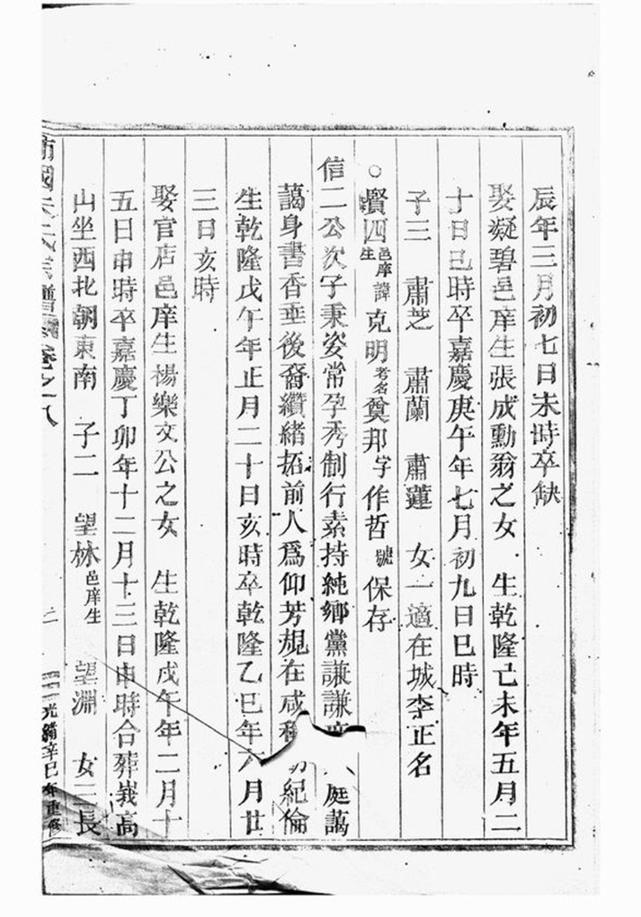 辰年三月初七日未時卒缺
娶凝碧邑庠生張成勳翁之女 生乾隆己未年五月二
十日巳時卒嘉慶庚午年七月初九日巳時
子三 肅芝 肅蘭 肅蓮 女一適在城李正名
○賢四邑庠生諱克明考名奠邦字作哲號保存
信二公次子秉姿常孕秀制行素持純鄉黨謙謙 庭藹
藹身書香垂後裔纘緒拓前人為仰芳規在咸 紀倫
生乾隆戊午年正月二十日亥時卒乾隆乙巳年六月廿
三日亥時
娶官店邑庠生楊樂文公之女 生乾隆戊午年二月十
五日申時卒嘉慶丁卯年十二月十三日申時合葬峩高
山坐西北朝東南 子二 望林邑庠生 望淵 女三長
國 氏 譜 卷之八
光緒辛巳年重修